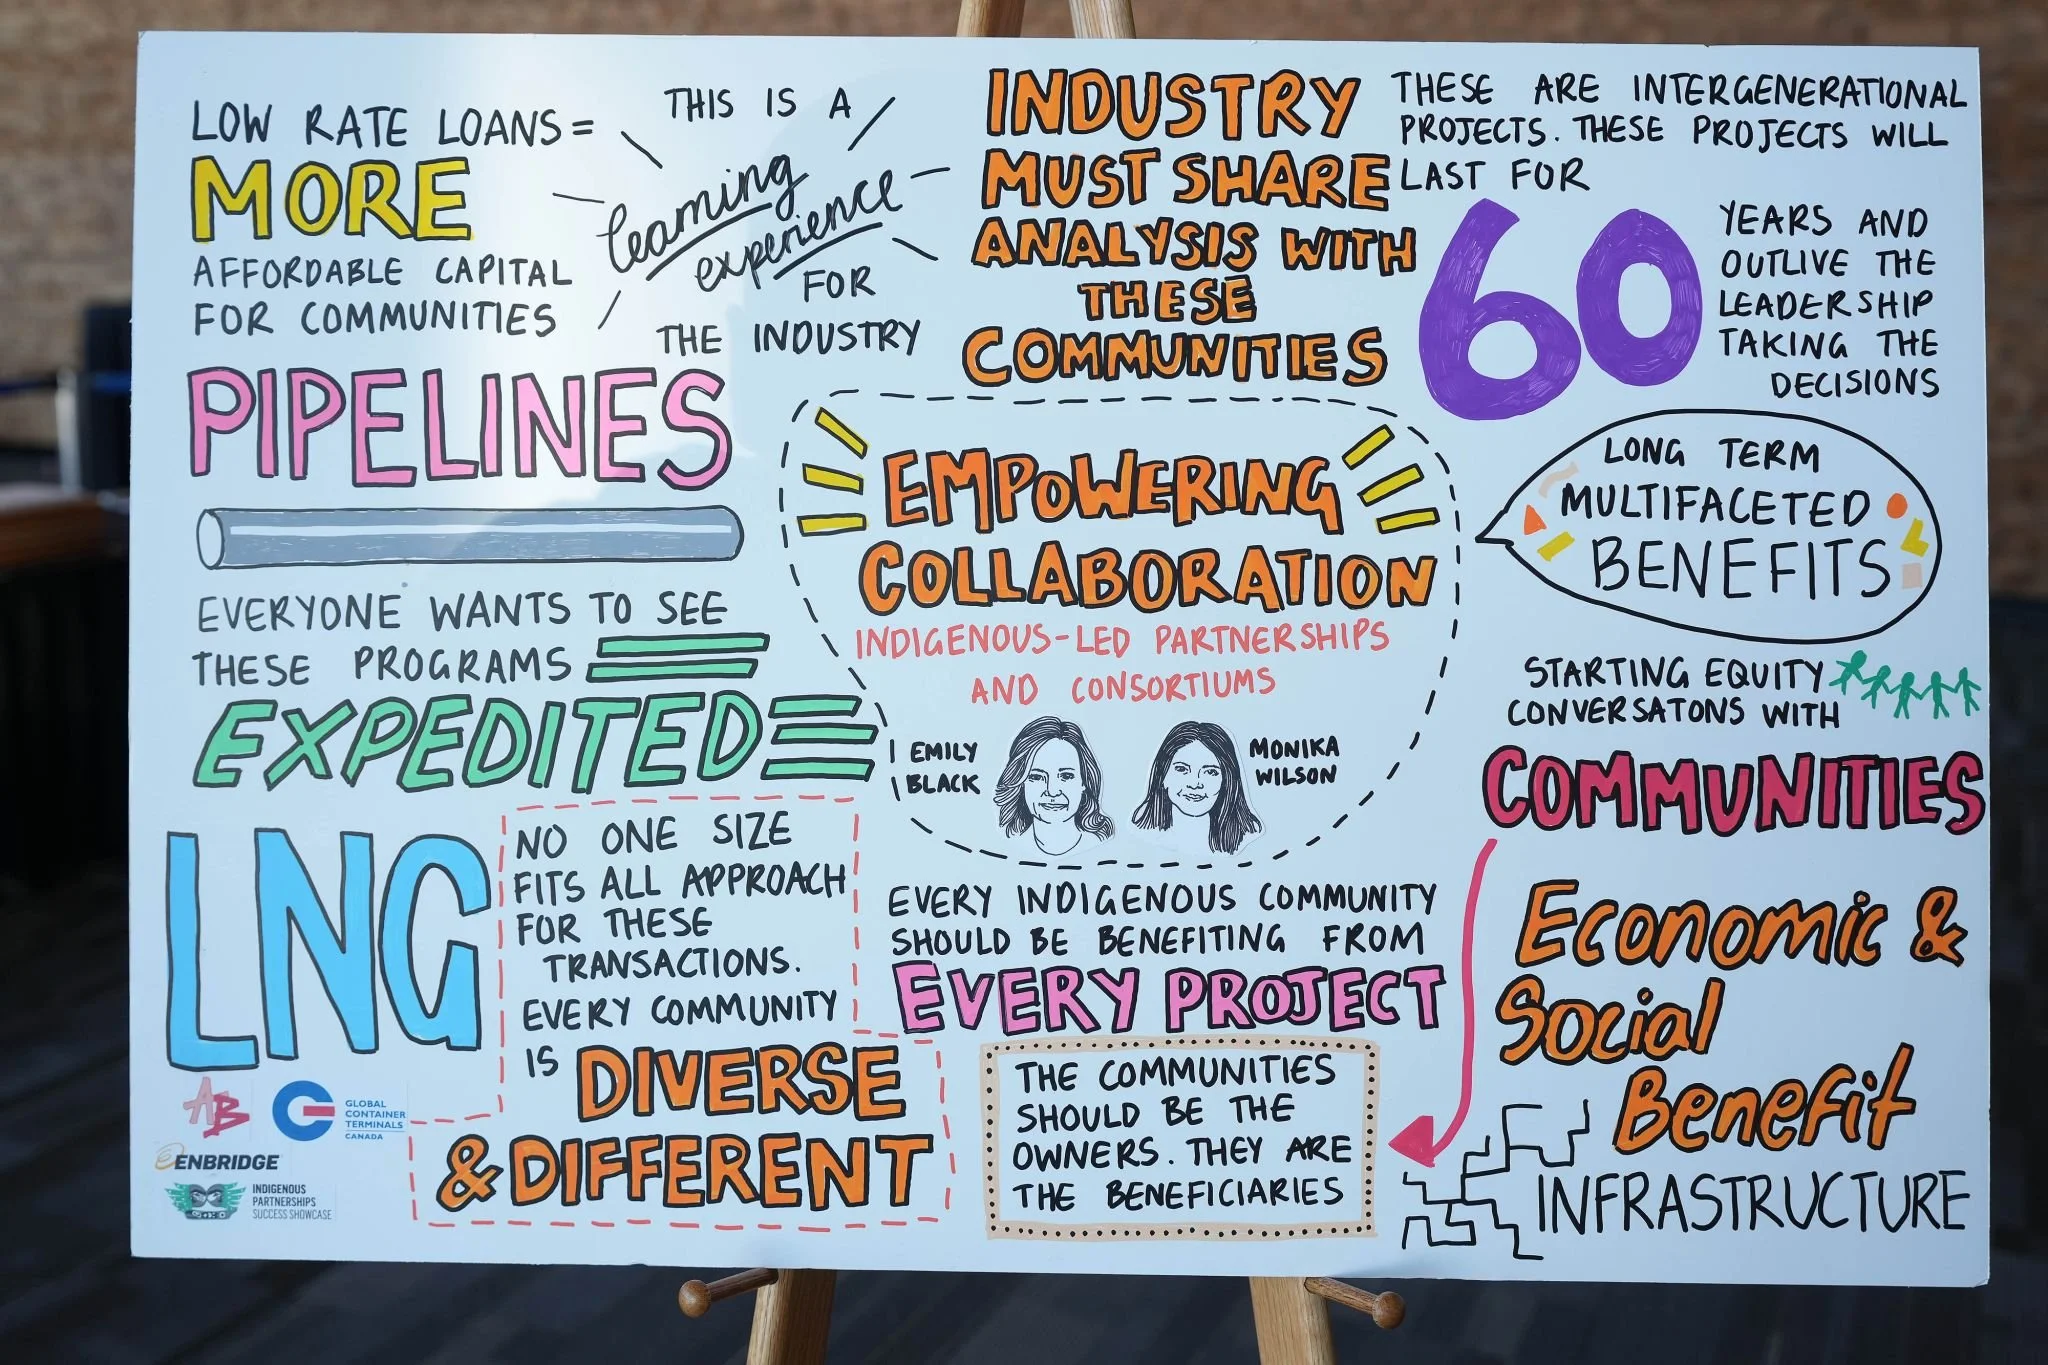 LOW RATE LOANS =
MORE
AFFORDABLE CAPITAL
FOR COMMUNITIES
THIS IS A
learning
experience
FOR
THE INDUSTRY
INDUSTRY
MUST SHARE
ANALYSIS WITH
THESE
COMMUNITIES
THESE ARE INTERGENERATIONAL
PROJECTS. THESE PROJECTS WILL
LAST FOR
60
YEARS AND
OUTLIVE THE
LEADERSHIP
TAKING THE
DECISIONS
PIPELINES
EVERYONE WANTS TO SEE
THESE PROGRAMS
EXPEDITED
EMPOWERING
COLLABORATION
INDIGENOUS-LED PARTNERSHIPS
AND CONSORTIUMS
EMILY
BLACK
MONIKA
WILSON
LONG TERM
MULTIFACETED
BENEFITS
STARTING EQUITY
CONVERSATONS WITH
COMMUNITIES
LNG
NO ONE SIZE
FITS ALL APPROACH
FOR THESE
TRANSACTIONS.
EVERY COMMUNITY
IS DIVERSE
& DIFFERENT
EVERY INDIGENOUS COMMUNITY
SHOULD BE BENEFITING FROM
EVERY PROJECT
THE COMMUNITIES
SHOULD BE THE
OWNERS. THEY ARE
THE BENEFICIARIES
Economic &
Social
Benefit
INFRASTRUCTURE
AB
GLOBAL
CONTAINER
TERMINALS
CANADA
ENBRIDGE
INDIGENOUS
PARTNERSHIPS
SUCCESS SHOWCASE